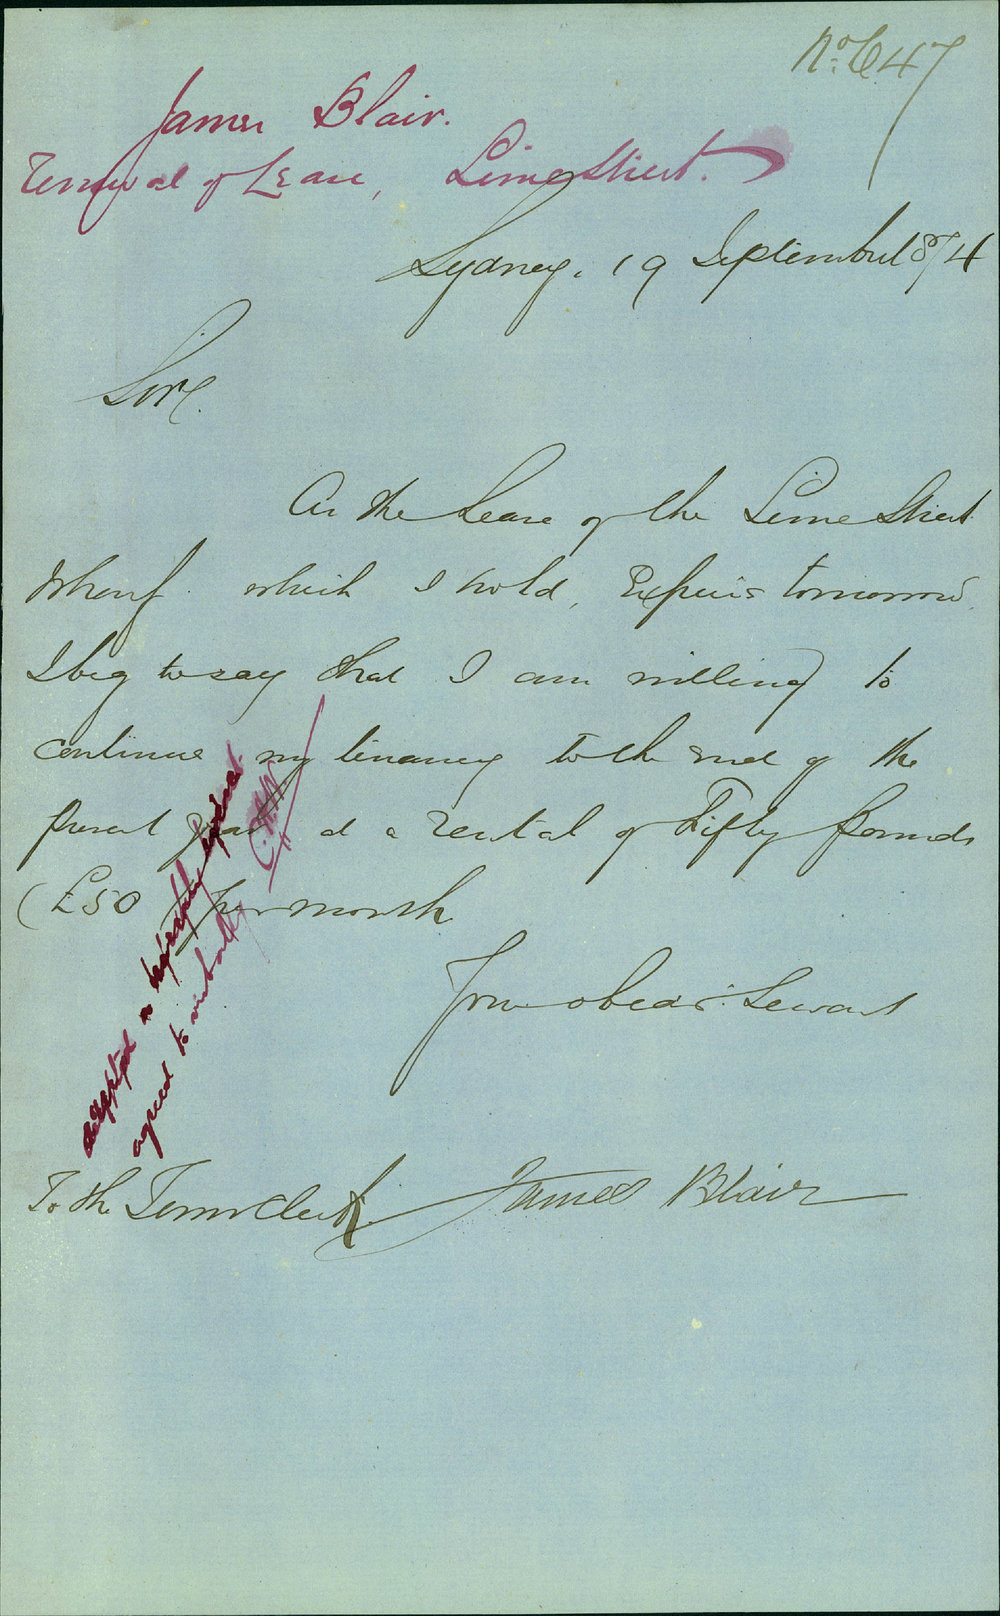 No. 647
James Blair.
Renewal of Lease, Lime Street.
Sydney, 19 September 1874
Sir.
As the Lease of the Lime Street
Wharf. which I hold, Expires tomorrow,
I beg to say that I am willing to
continue my tenancy to the end of the
present year at a rental of Fifty pounds
(£50) per month
Your obedt. Servant
James Blair
To the Town Clerk.
accepted
agreed to verbally
C.H.W.